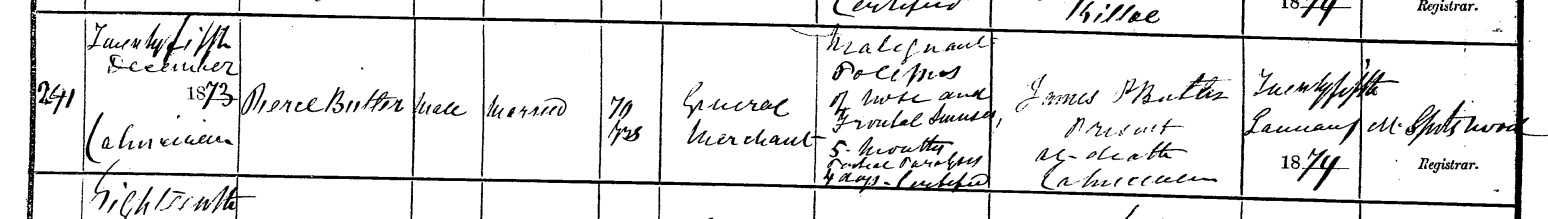 Certified
Killoe
1874
Registrar.
241
Twenty fifth
December
1873
Cahirciveen
Pierce Butler
Male
Married
70
yrs
General
Merchant
Malignant
Polipus
of nose and
Frontal Sinuses,
5 months
Partial Paralysis
4 days. Certified
James P Butler
Present
at death
Cahirciveen
Twenty fifth
January
1874
M. Spotswood
Registrar.
Eighteenth